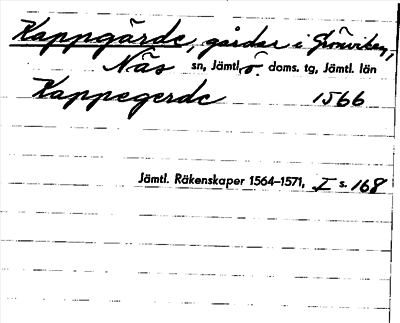 Kappgärde, gårdar i Grönviken,
Näs sn, Jämtl. ö. doms. tg, Jämtl. län
Kappegerde 1566
Jämtl. Räkenskaper 1564–1571, I s. 168